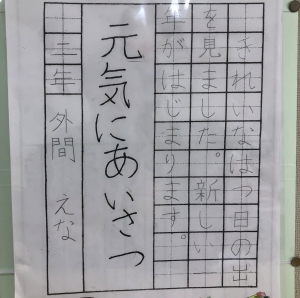 きれいなはつ日の出
を見ました。新しい一
年がはじまります。
元気にあいさつ
三年 外間 えな